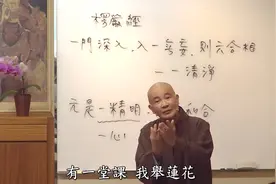 楞嚴經
一門深入,入一無妄,則六合相
一一清淨
元是一精明,
和合
一心
有一堂課 我舉蓮花